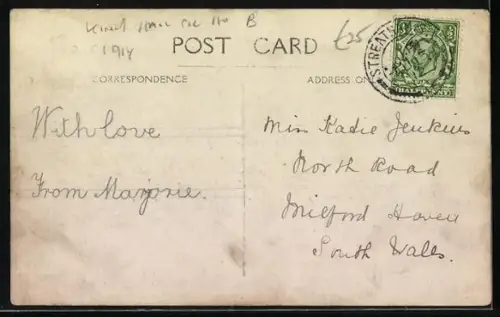 B
1914
£25
POST CARD
CORRESPONDENCE
ADDRESS ON
STREATH
HALF
With love
From Marjorie.
Miss Katie Jenkins
North Road
Milford Haven
South Wales.